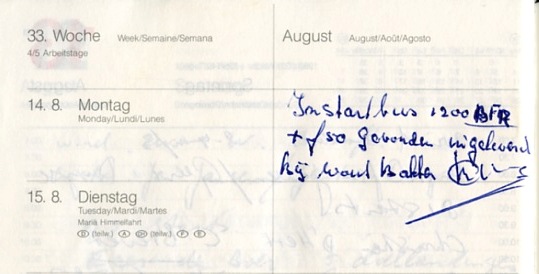 33. Woche Week/Semaine/Semana
4/5 Arbeitstage
August August/Août/Agosto
14. 8. Montag
Monday/Lundi/Lunes
1200 BFR
+ f 50 gevonden ingeleverd
bij
15. 8. Dienstag
Tuesday/Mardi/Martes
Mariä Himmelfahrt
D (teilw.) A CH (teilw.) F E